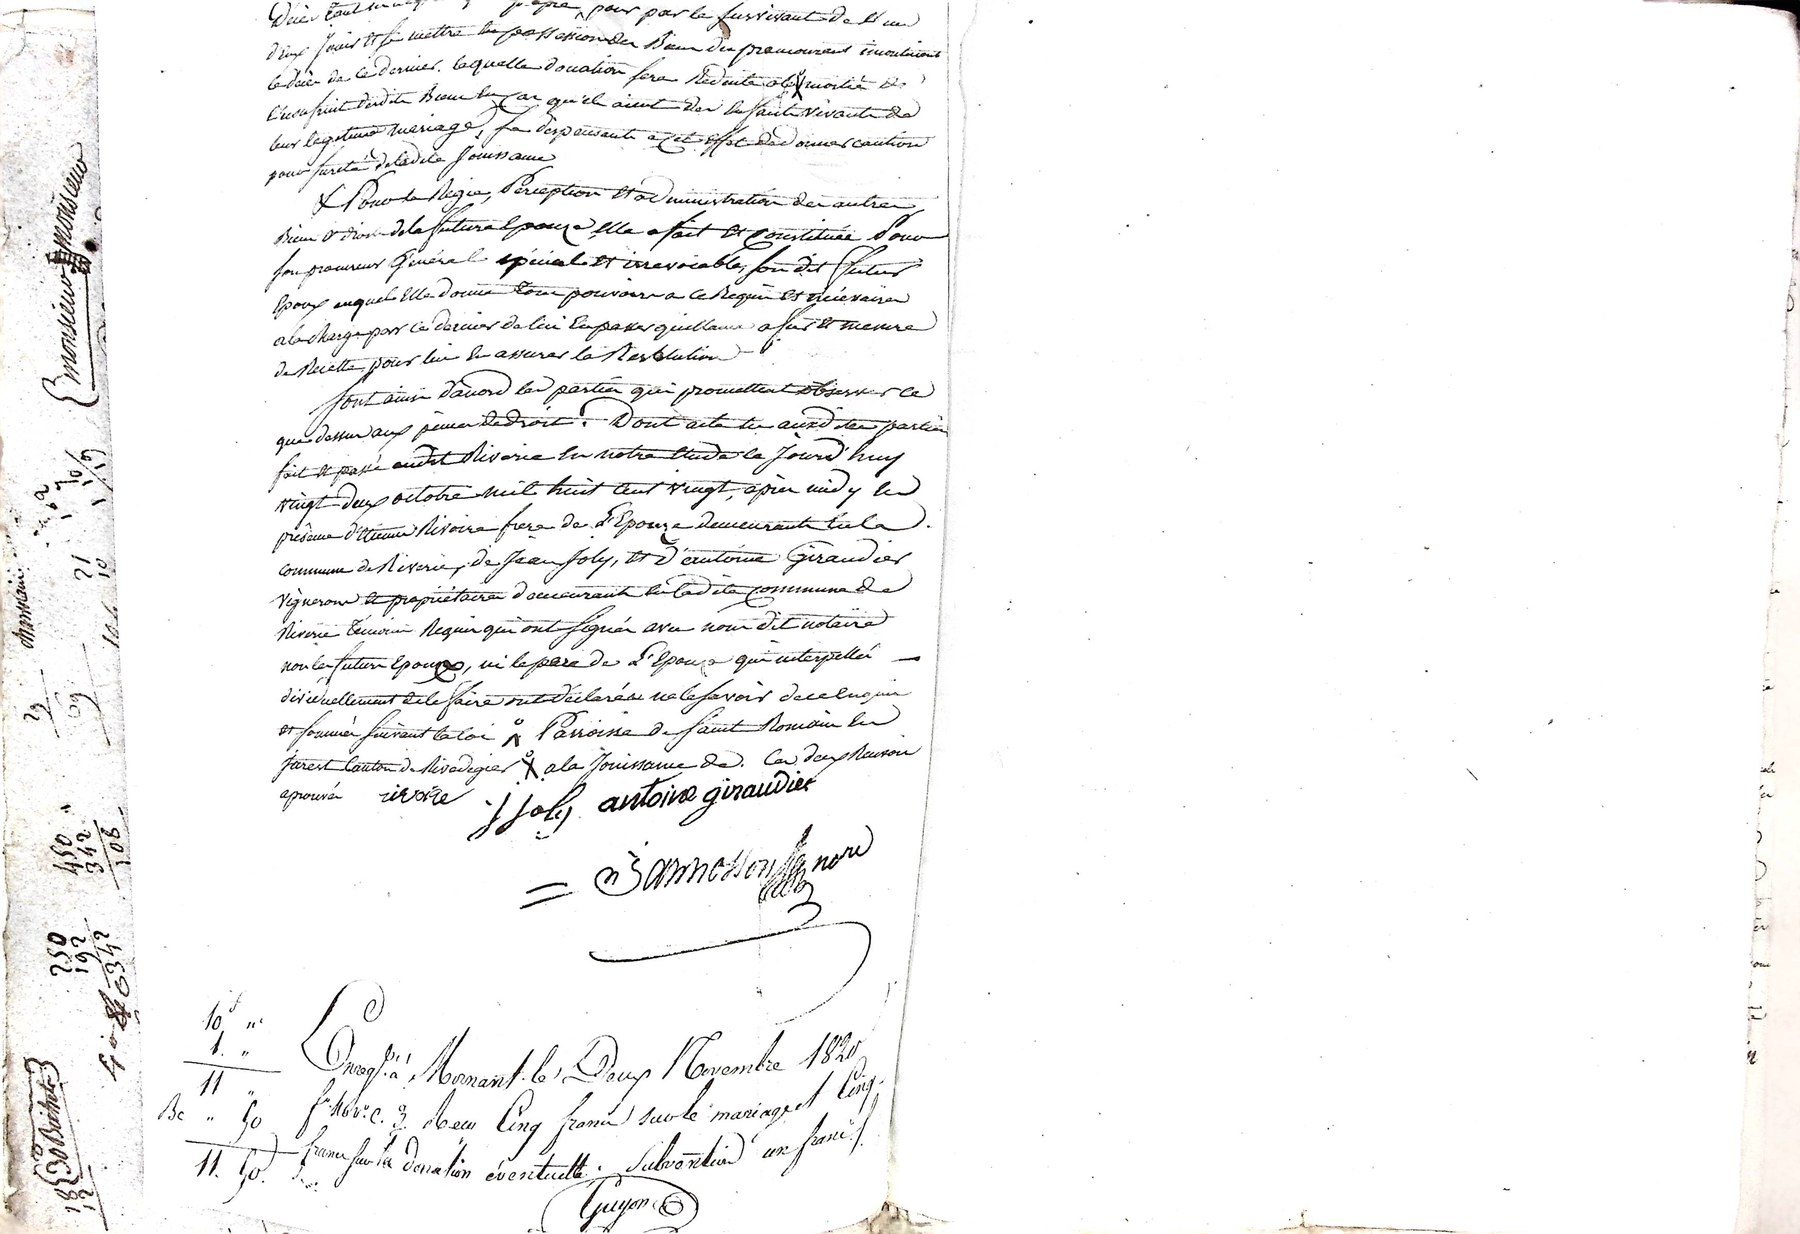 pour par le survivant de l'un
d'eux jouir et se mettre en possession des Biens du premourant incontinent
le décès de ce dernier. laquelle donation sera Réduite a la moitié de
l'usufruit desdits Biens en cas qu'il aient des enfants vivants de
leur legitime mariage, se dispensants a cet effet de donner caution
pour sureté de ladite Jouissance
Pour la Regie, Perception et administration des autres
Biens et droits de la future Epouze, elle a fait et constituée Pour
son procureur Général spécial et irrevocable, son dit futur
Epoux auquel elle donne tous pouvoirs a ce Requis et nécéssaires
a la charge par ce dernier de lui en passer quittance a fur et mesure
de Recette pour lui en assurer la Restitution
sont ainsi d'acord les parties qui promettent observer ce
que dessus aux peines de droit. Dont acte lu auxdites parties
fait et passé audit Riverie en notre Etude le Jourd'huy
vingt deux octobre mil huit cent vingt, après midy en
présence d'Etienne Rivoire frere de l'Epouze demeurant en la
commune de Riverie, de Jean Joly, et d'antoine Giraudier
vignerons et propriétaires demeurants en ladite commune de
Riverie témoins Requis qui ont signés avec nous dit notaire
non les futurs Epoux, ni le pere de l'Epouze qui interpellés
de le faire ont déclarés ne le savoir de ce enquis
et sommés suivant la loi Parroisse de saint Romain en
Jarest Canton de Rivedegier a la Jouissance de. Ces deux Renvois
aprouvés rivoire
J Joly antoine giraudier
nore
10f "c
1. "
11 "
" 50
11. 50.
Enregt. à Mornant le Deux Novembre 1820
c. 3. Reçu Cinq francs sur le mariage et Cinq
francs sur la donation éventuelle. Subvention un franc
Guyon
monsieur monsieur
450
342
108
250
192
342
21
10
29
69
18
30 Bichets
12